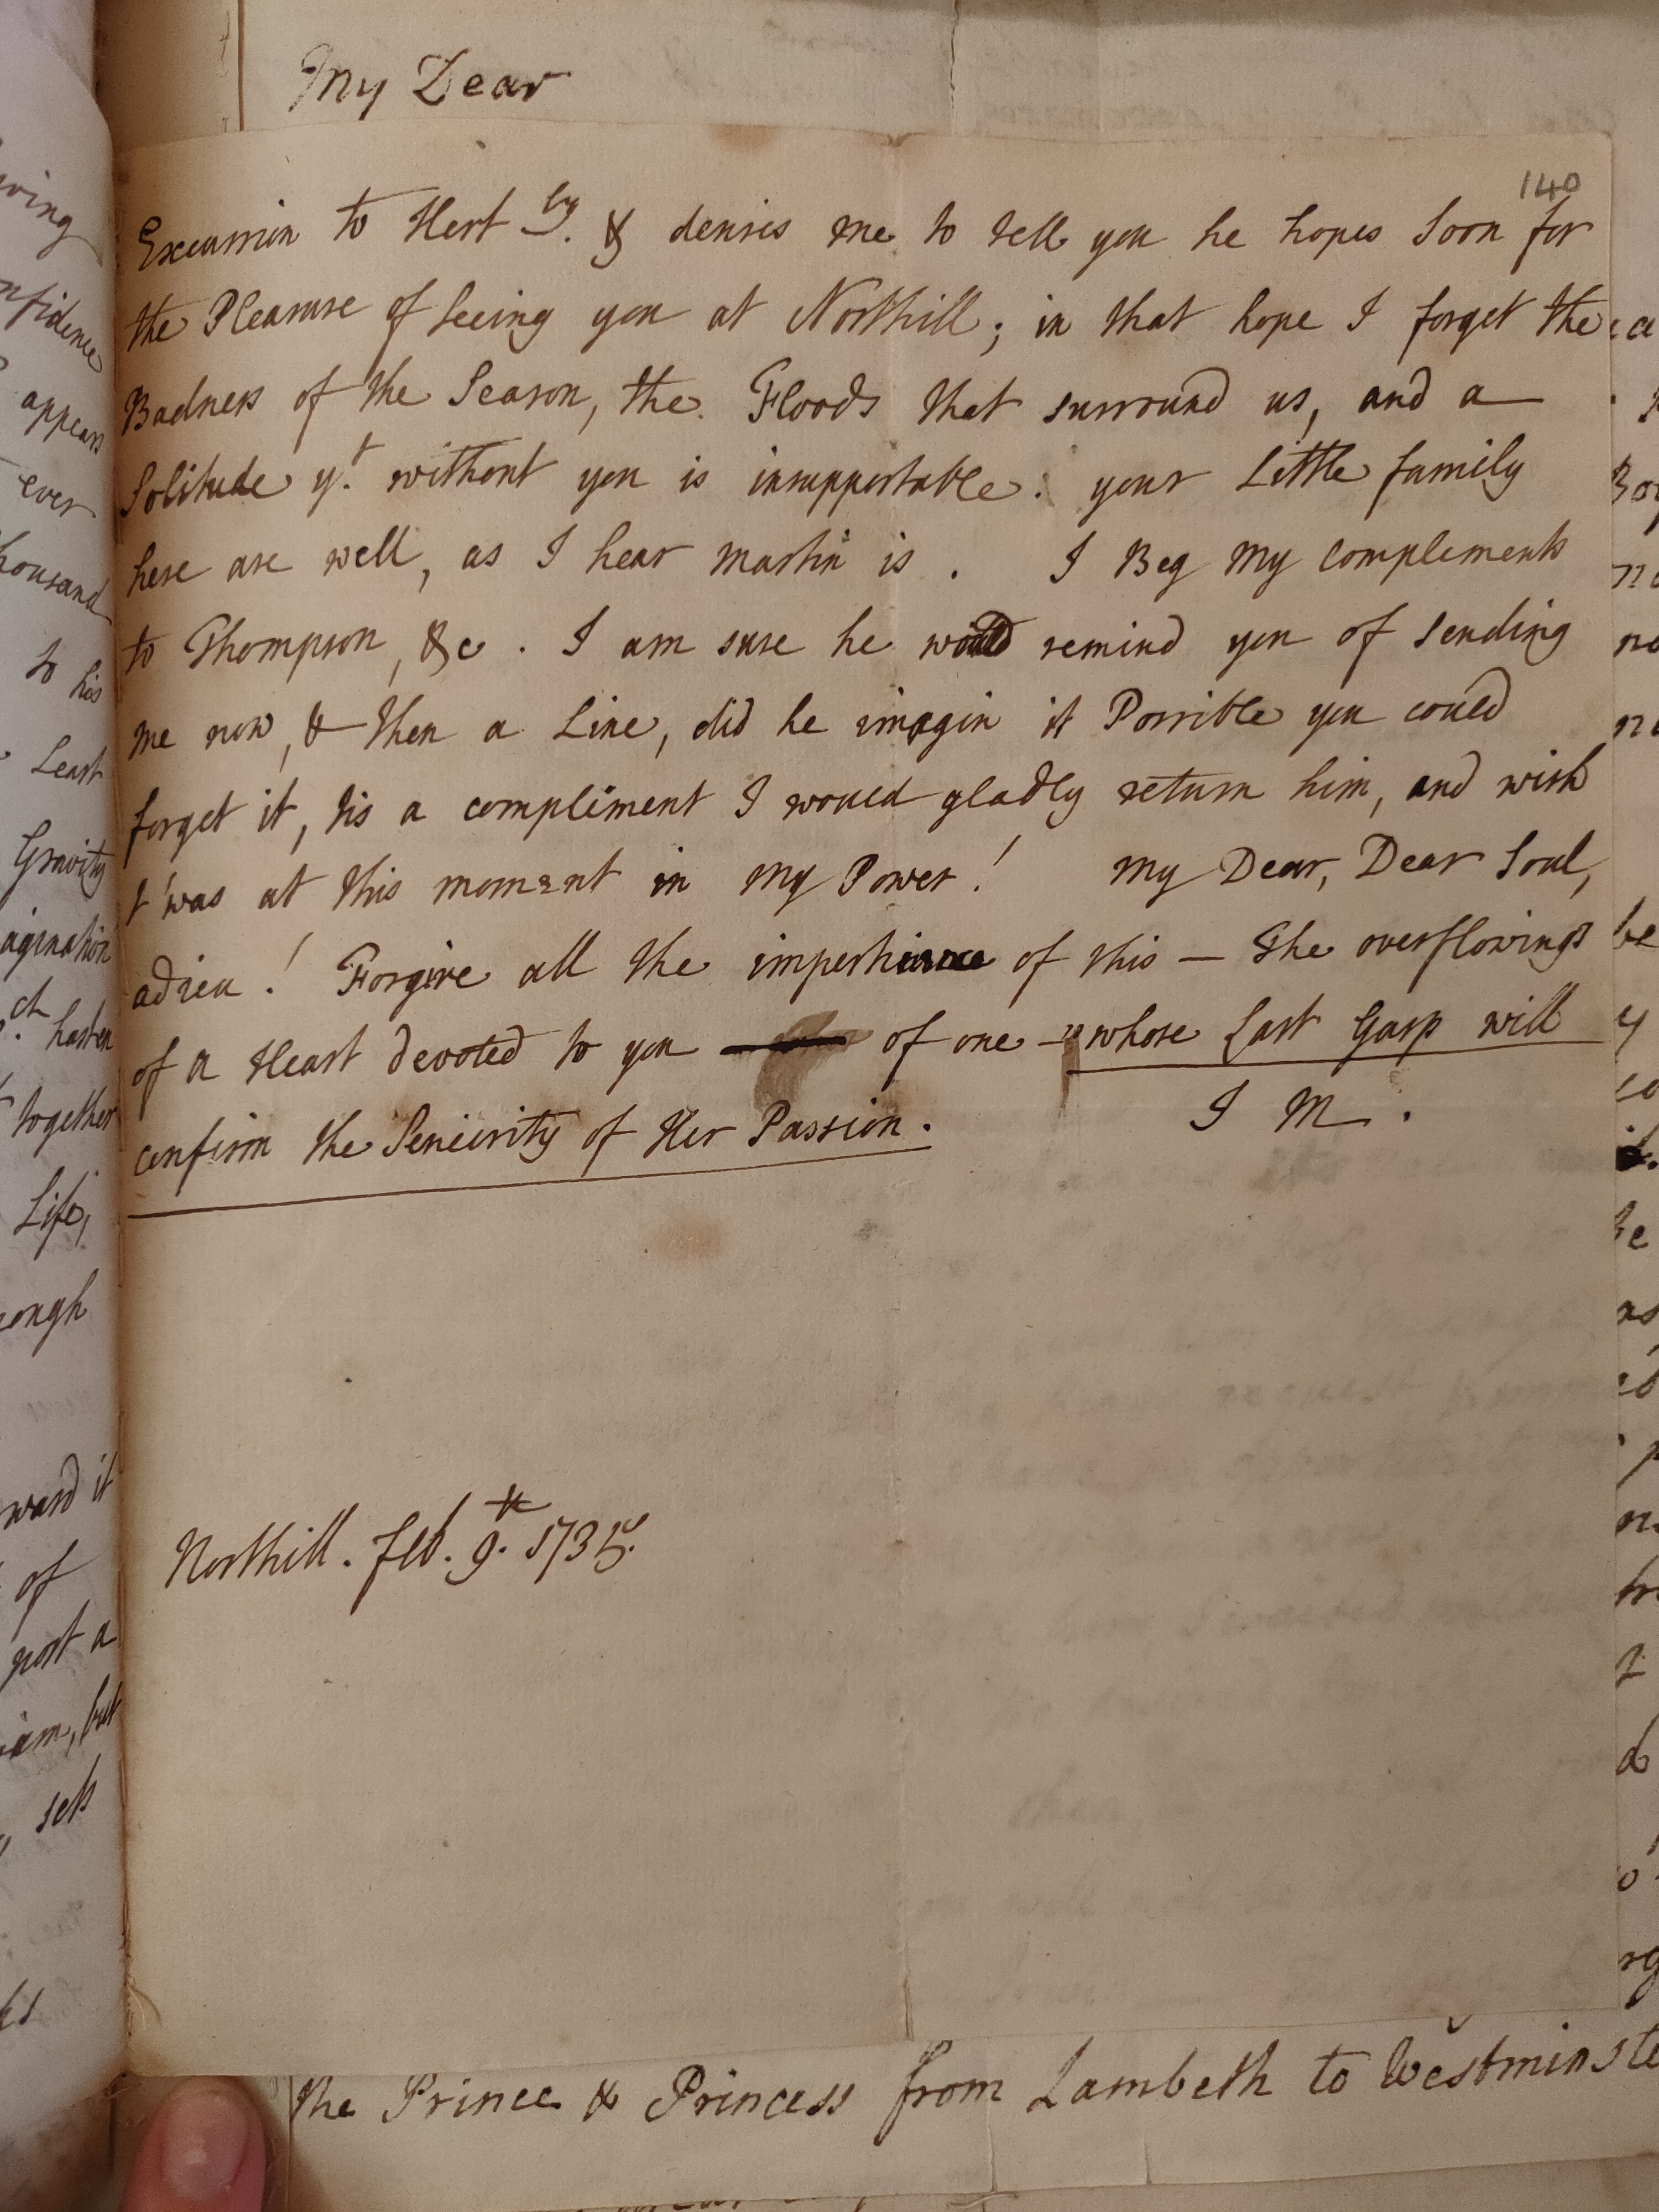 My Dear
140
Excursion to Hert ry. & desires me to tell you he hopes Soon for
the Pleasure of Seeing you at Northill; in that hope I forget the
Badness of the Season, the Floods that surround us, and a
Solitude yt. without you is insupportable. your Little family
here are well, as I hear Martin is. I Beg My Complements
to Thompson, &c. I am sure he would remind you of Sending
me now, & then a Line, did he imagin it Possible you could
forget it, tis a compliment I would gladly return him, and wish
t'was at this moment in My Power! My Dear, Dear Soul,
adieu! Forgive all the impertinence of this — The overflowings
of a Heart devoted to you of one — whose Last Gasp will
confirm the Sincirity of Her Passion.
I M.
Northill. Feb. 9.th 173
the Prince & Princess from Lambeth to Westminste
wing
nfidence
appears
ever
housand
to his
Least
Gravity
agination
hasten
together
Life,
ough
ward it
of
post a
iam, but
sets
be